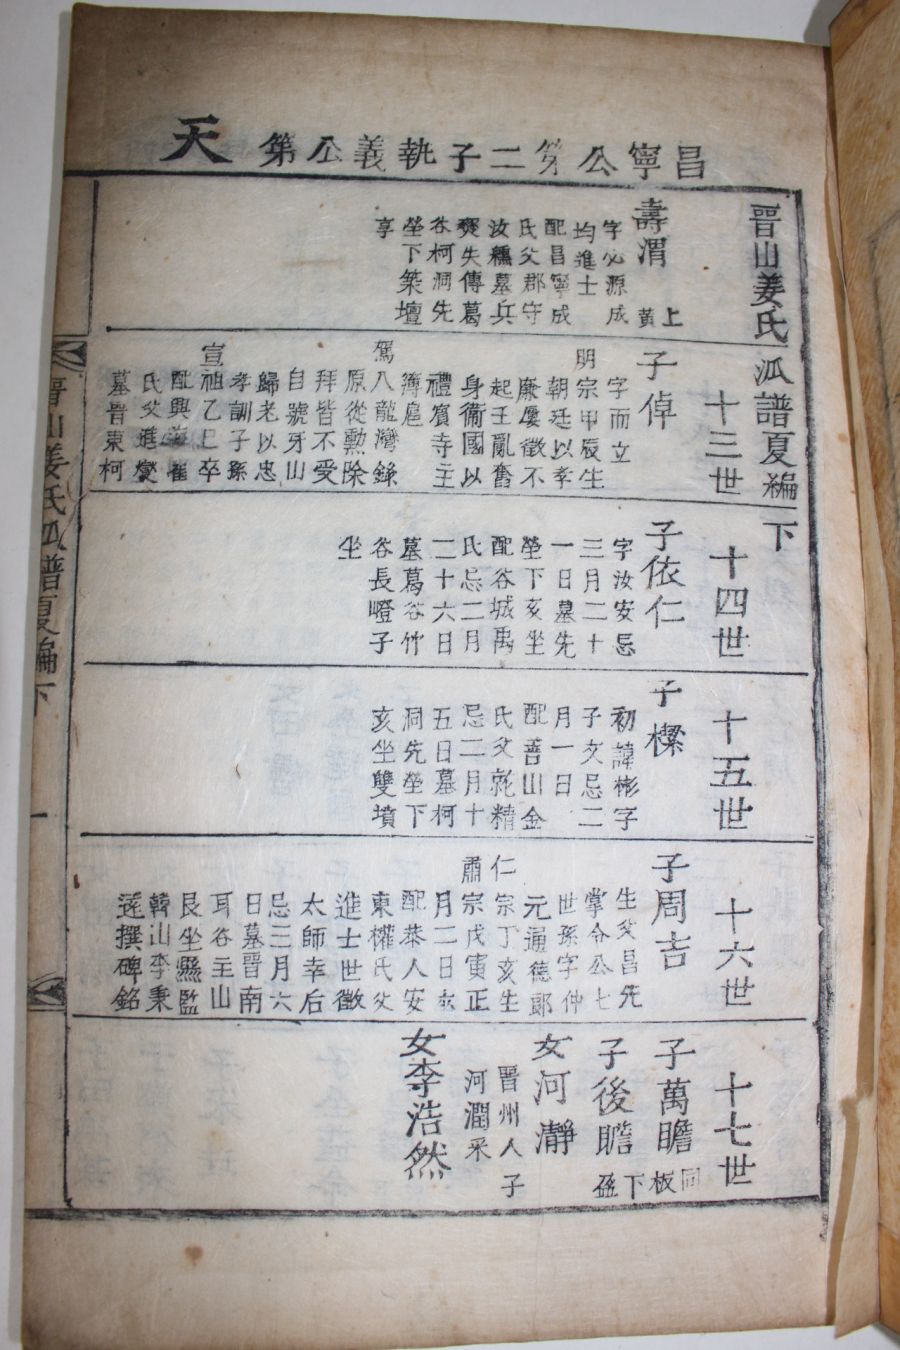 昌寧公第二子執義公第
天
晋山姜氏
派譜夏編下
壽渭
上
黃
字必源成
均進士
配昌寧成
氏父郡守
汝櫄墓兵
燹失傳葛
谷柯洞先
塋下築壇
享
十三世
子倬
字而立
明宗甲辰生
朝廷以孝
廉屢徵不
起壬亂奮
身衛國以
禮賓寺主
簿扈
駕八龍灣錄
原從勲除
拜皆不受
自號牙山
歸老以忠
孝訓子孫
宣祖乙巳卒
配興陽崔
氏父進燮
墓晋東柯
十四世
子依仁
字汝安忌
三月二十
一日墓先
塋下亥坐
配谷城禹
氏忌二月
二十六日
墓葛谷竹
谷長嶝子
坐
十五世
子樑
初諱彬字
子文忌二
月一日
配善山金
氏父乾精
忌二月十
五日墓柯
洞先塋下
亥坐雙墳
十六世
子周吉
生父昌先
掌令公七
世孫字仲
元通德郞
仁宗丁亥生
肅宗戊寅正
月二日卒
配恭人安
東權氏父
進士世徵
太師幸后
忌三月六
日墓晋南
耳谷主山
艮坐縣監
韓山李秉
遠撰碑銘
十七世
子萬瞻
同板
子後瞻
下
女河瀞
晋州人 子
河潤采
女李浩然
晋山姜氏派譜夏編下
一